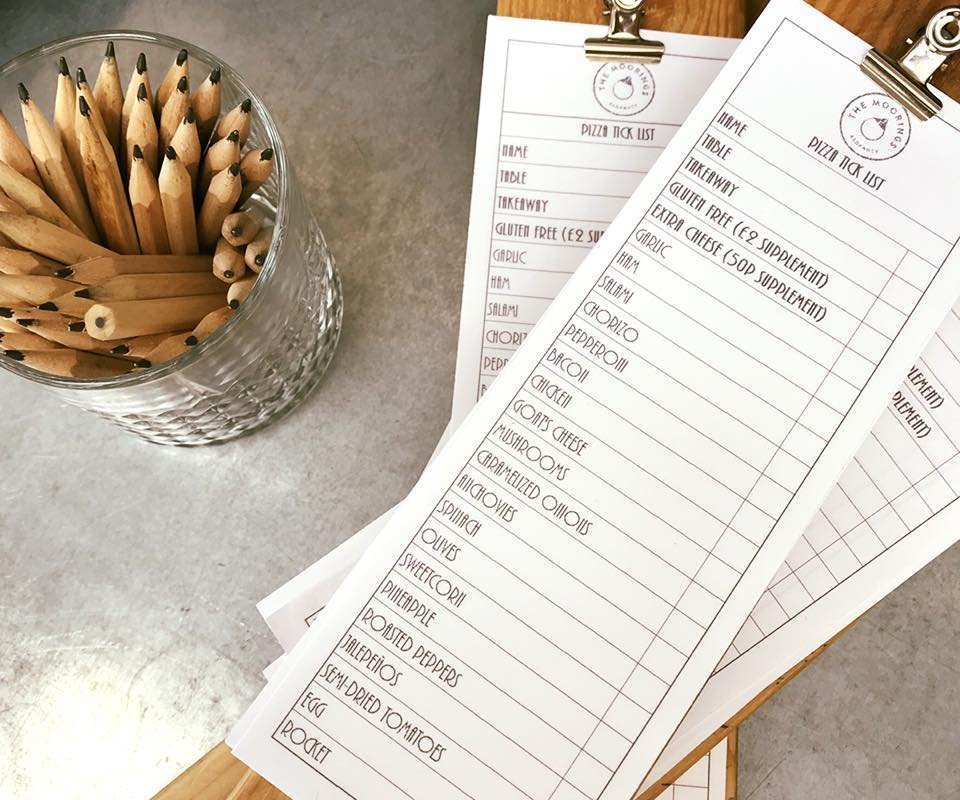 THE MOORINGS
PIZZA TICK LIST
NAME
TABLE
TAKEAWAY
GLUTEN FREE (£2
GARLIC
HAM
SALAMI
CHORIZO
THE MOORINGS
PIZZA TICK LIST
NAME
TABLE
TAKEAWAY
GLUTEN FREE (£2 SUPPLEMENT)
EXTRA CHEESE (50P SUPPLEMENT)
GARLIC
HAM
SALAMI
CHORIZO
PEPPERONI
BACON
CHICKEN
GOATS CHEESE
MUSHROOMS
CARAMELIZED ONIONS
ANCHOVIES
SPINACH
OLIVES
SWEETCORN
PINEAPPLE
ROASTED PEPPERS
JALEPEÑOS
SEMI-DRIED TOMATOES
EGG
ROCKET